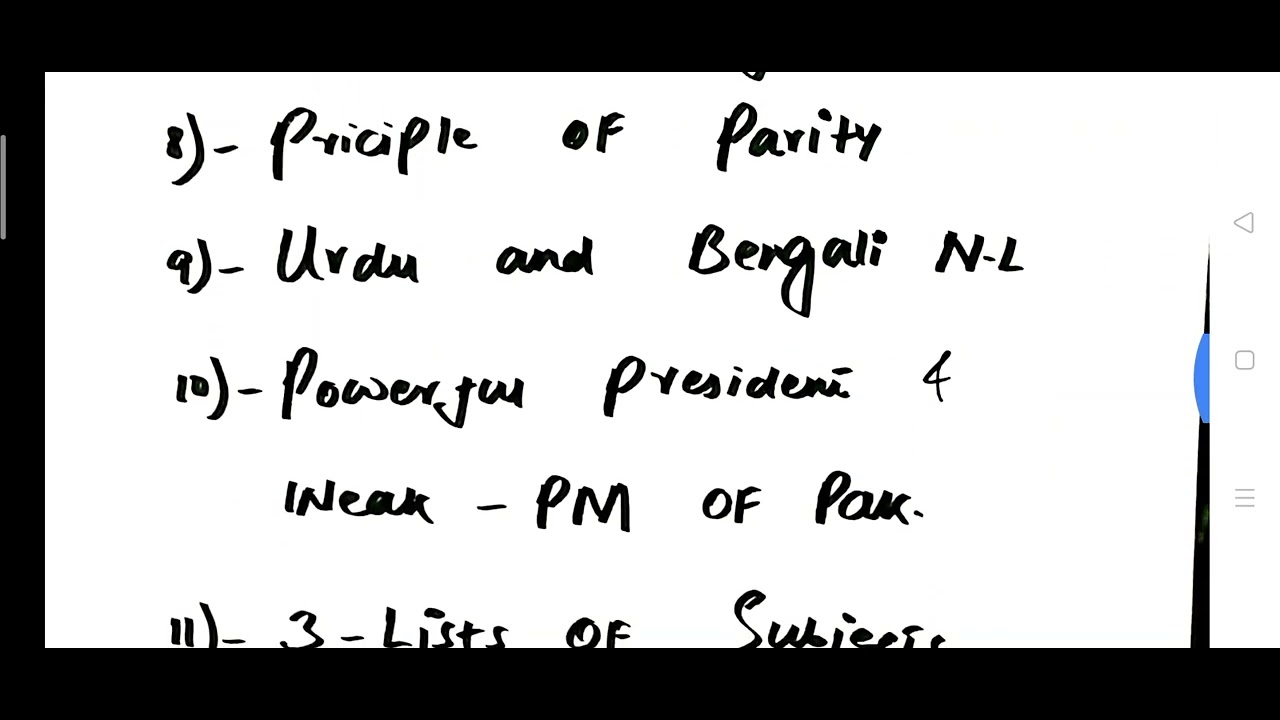 8)- Priciple OF Parity
9)- Urdu and Bengali N-L
10)- Powerful President &
Weak - PM OF Pak.
11)- 3-Lists OF Subjects